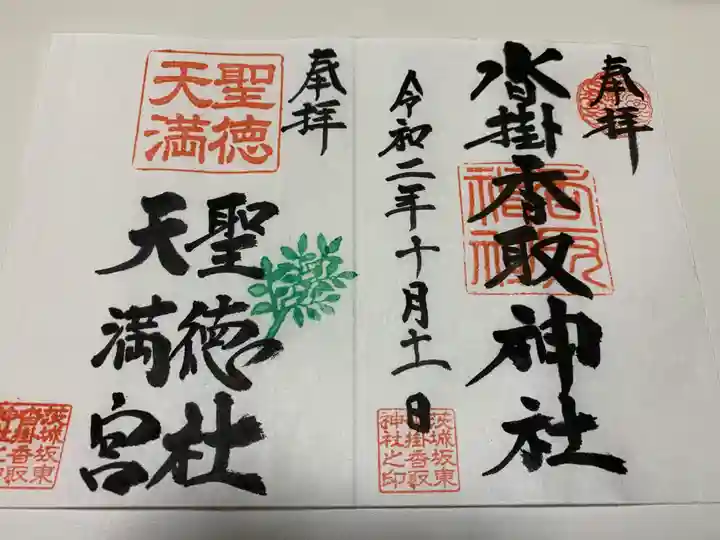 奉拝
沓掛香取神社
令和二年十月十一日
茨城坂東
沓掛香取
神社之印
奉拝
聖徳
天満
聖徳社
天満宮
茨城坂東
沓掛香取
神社之印